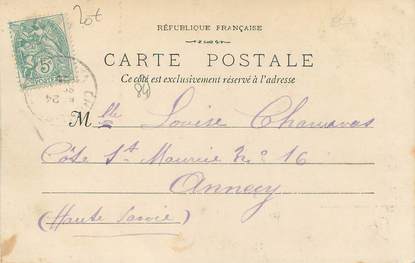 20t
RÉPUBLIQUE FRANÇAISE
CARTE POSTALE
Ce côté est exclusivement réservé à l'adresse
5c
24
84
Mlle Louise Chamavas
Côte St Maurice No 16
Annecy
(Haute Savoie)